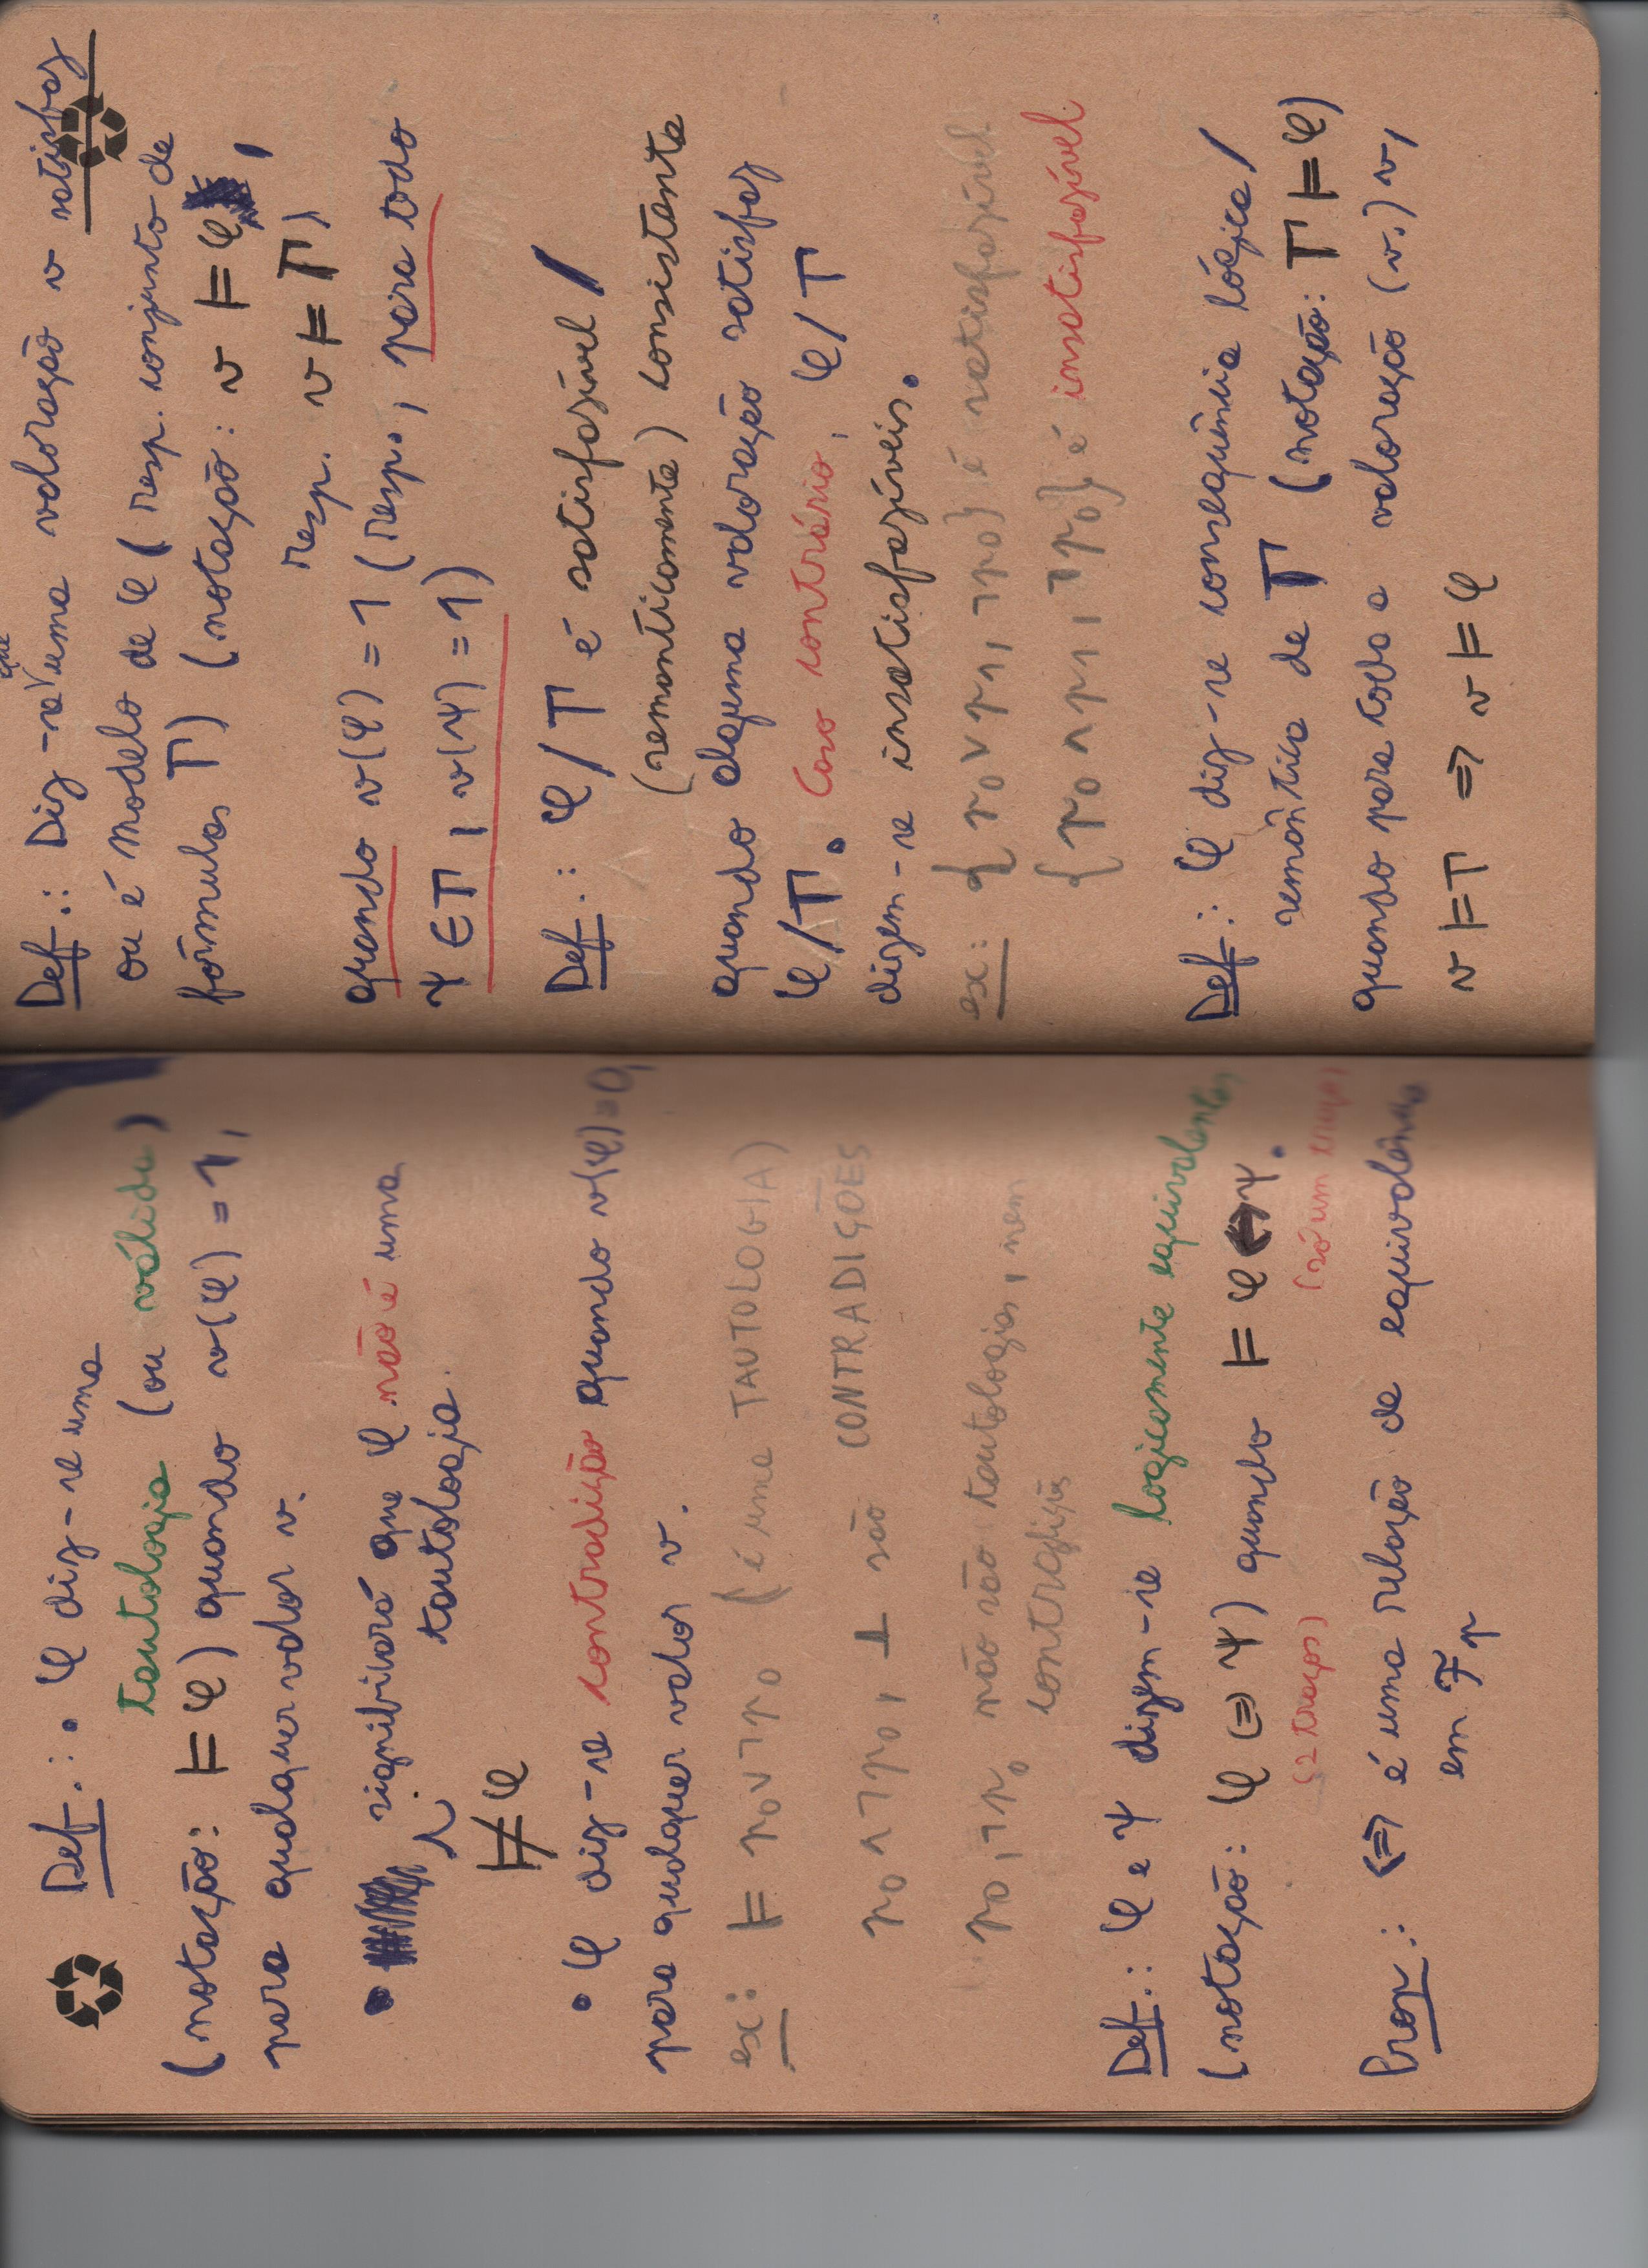 Def.: • φ diz-se uma
tautologia (ou válida)
(notação: ⊨ φ) quando v(φ) = 1,
para qualquer valor v.
• significará que φ não é uma
tautologia.
⊭ φ
• φ diz-se contradição quando v(φ) = 0,
para qualquer valor v.
ex: ⊨ p₀ ∨ ¬p₀ (é uma TAUTOLOGIA)
p₀ ∧ ¬p₀, ⊥ são CONTRADIÇÕES
p₀, ¬p₀ não são tautologias, nem
contradições
Def.: φ e ψ dizem-se logicamente equivalentes
(notação: φ ⇔ ψ) quando ⊨ φ ↔ ψ.
(2 traços) (só um traço)
Prop.: ⇔ é uma relação de equivalência
em Fp
Def.: Diz-se que uma valoração v satisfaz
ou é modelo de φ (resp. conjunto de
fórmulas Γ) (notação: v ⊨ φ,
resp. v ⊨ Γ)
quando v(φ) = 1 (resp., para todo
ψ ∈ Γ, v(ψ) = 1)
Def.: φ/Γ é satisfazível /
(semanticamente) consistente
quando alguma valoração satisfaz
φ/Γ. Caso contrário, φ/Γ
dizem-se insatisfazíveis.
ex: {p₀ ∨ p₁, ¬p₀} é satisfazível
{p₀ ∧ p₁, ¬p₀} é insatisfazível
Def.: φ diz-se consequência lógica /
semântica de Γ (notação: Γ ⊨ φ)
quando para toda a valoração (v.) v,
v ⊨ Γ ⇒ v ⊨ φ